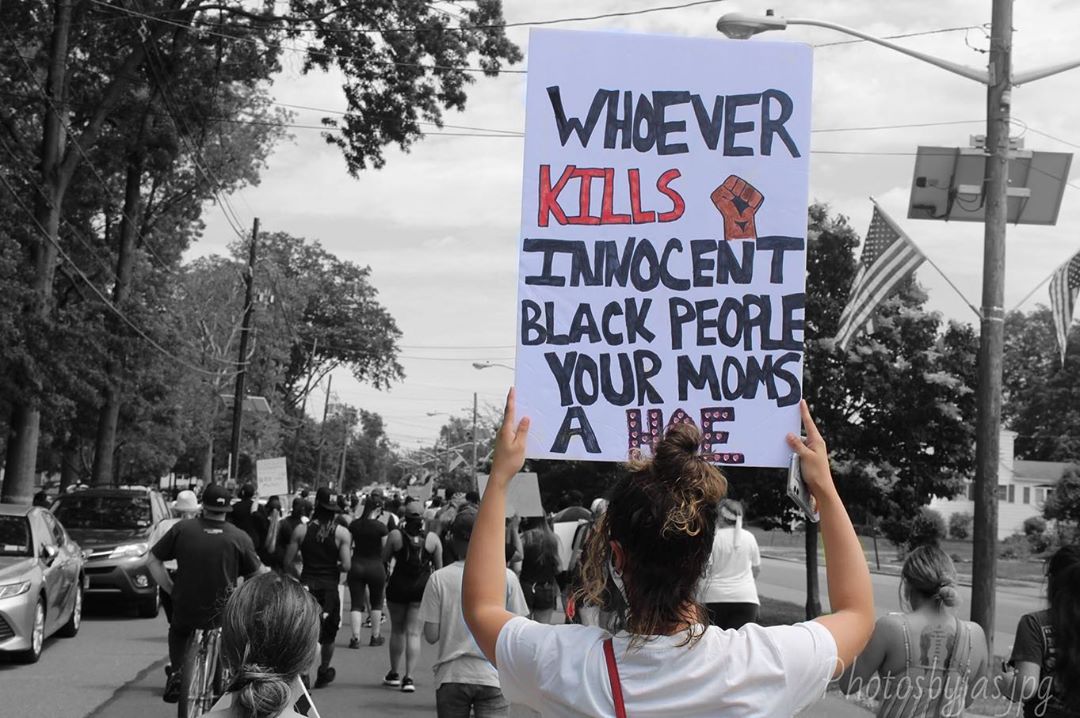 WHOEVER
KILLS
INNOCENT
BLACK PEOPLE
YOUR MOMS
A HOE
Photosbyjas.jpg